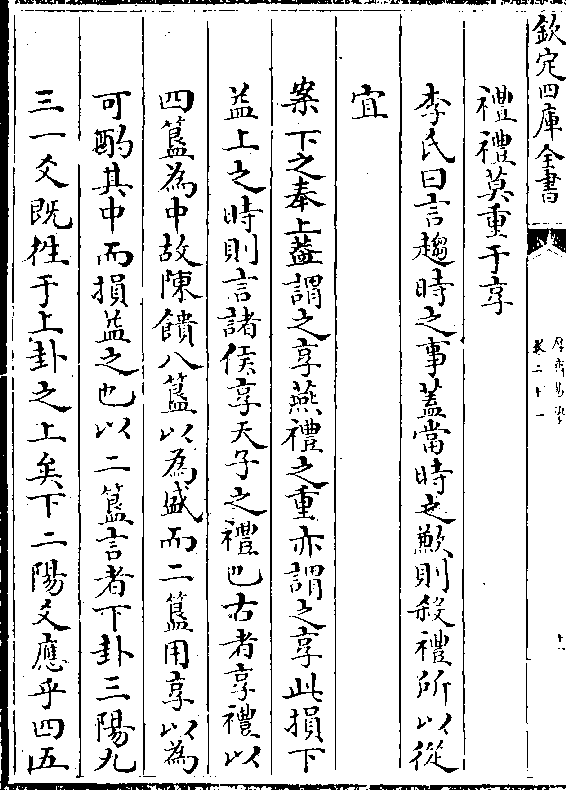 欽定四庫全書
厚齋易學
卷二十一
十一
禮禮莫重于享
李氏曰言趨時之事蓋當時之歉則殺禮所以從
宜
案下之奉上葢謂之享燕禮之重亦謂之享此損下
益上之時則言諸侯享天子之禮也古者享禮以
四簋為中故陳饋八簋以為盛而二簋用享以為
可酌其中而損益之也以二簋言者下卦三陽九
三一爻既往于上卦之上矣下二陽爻應乎四五